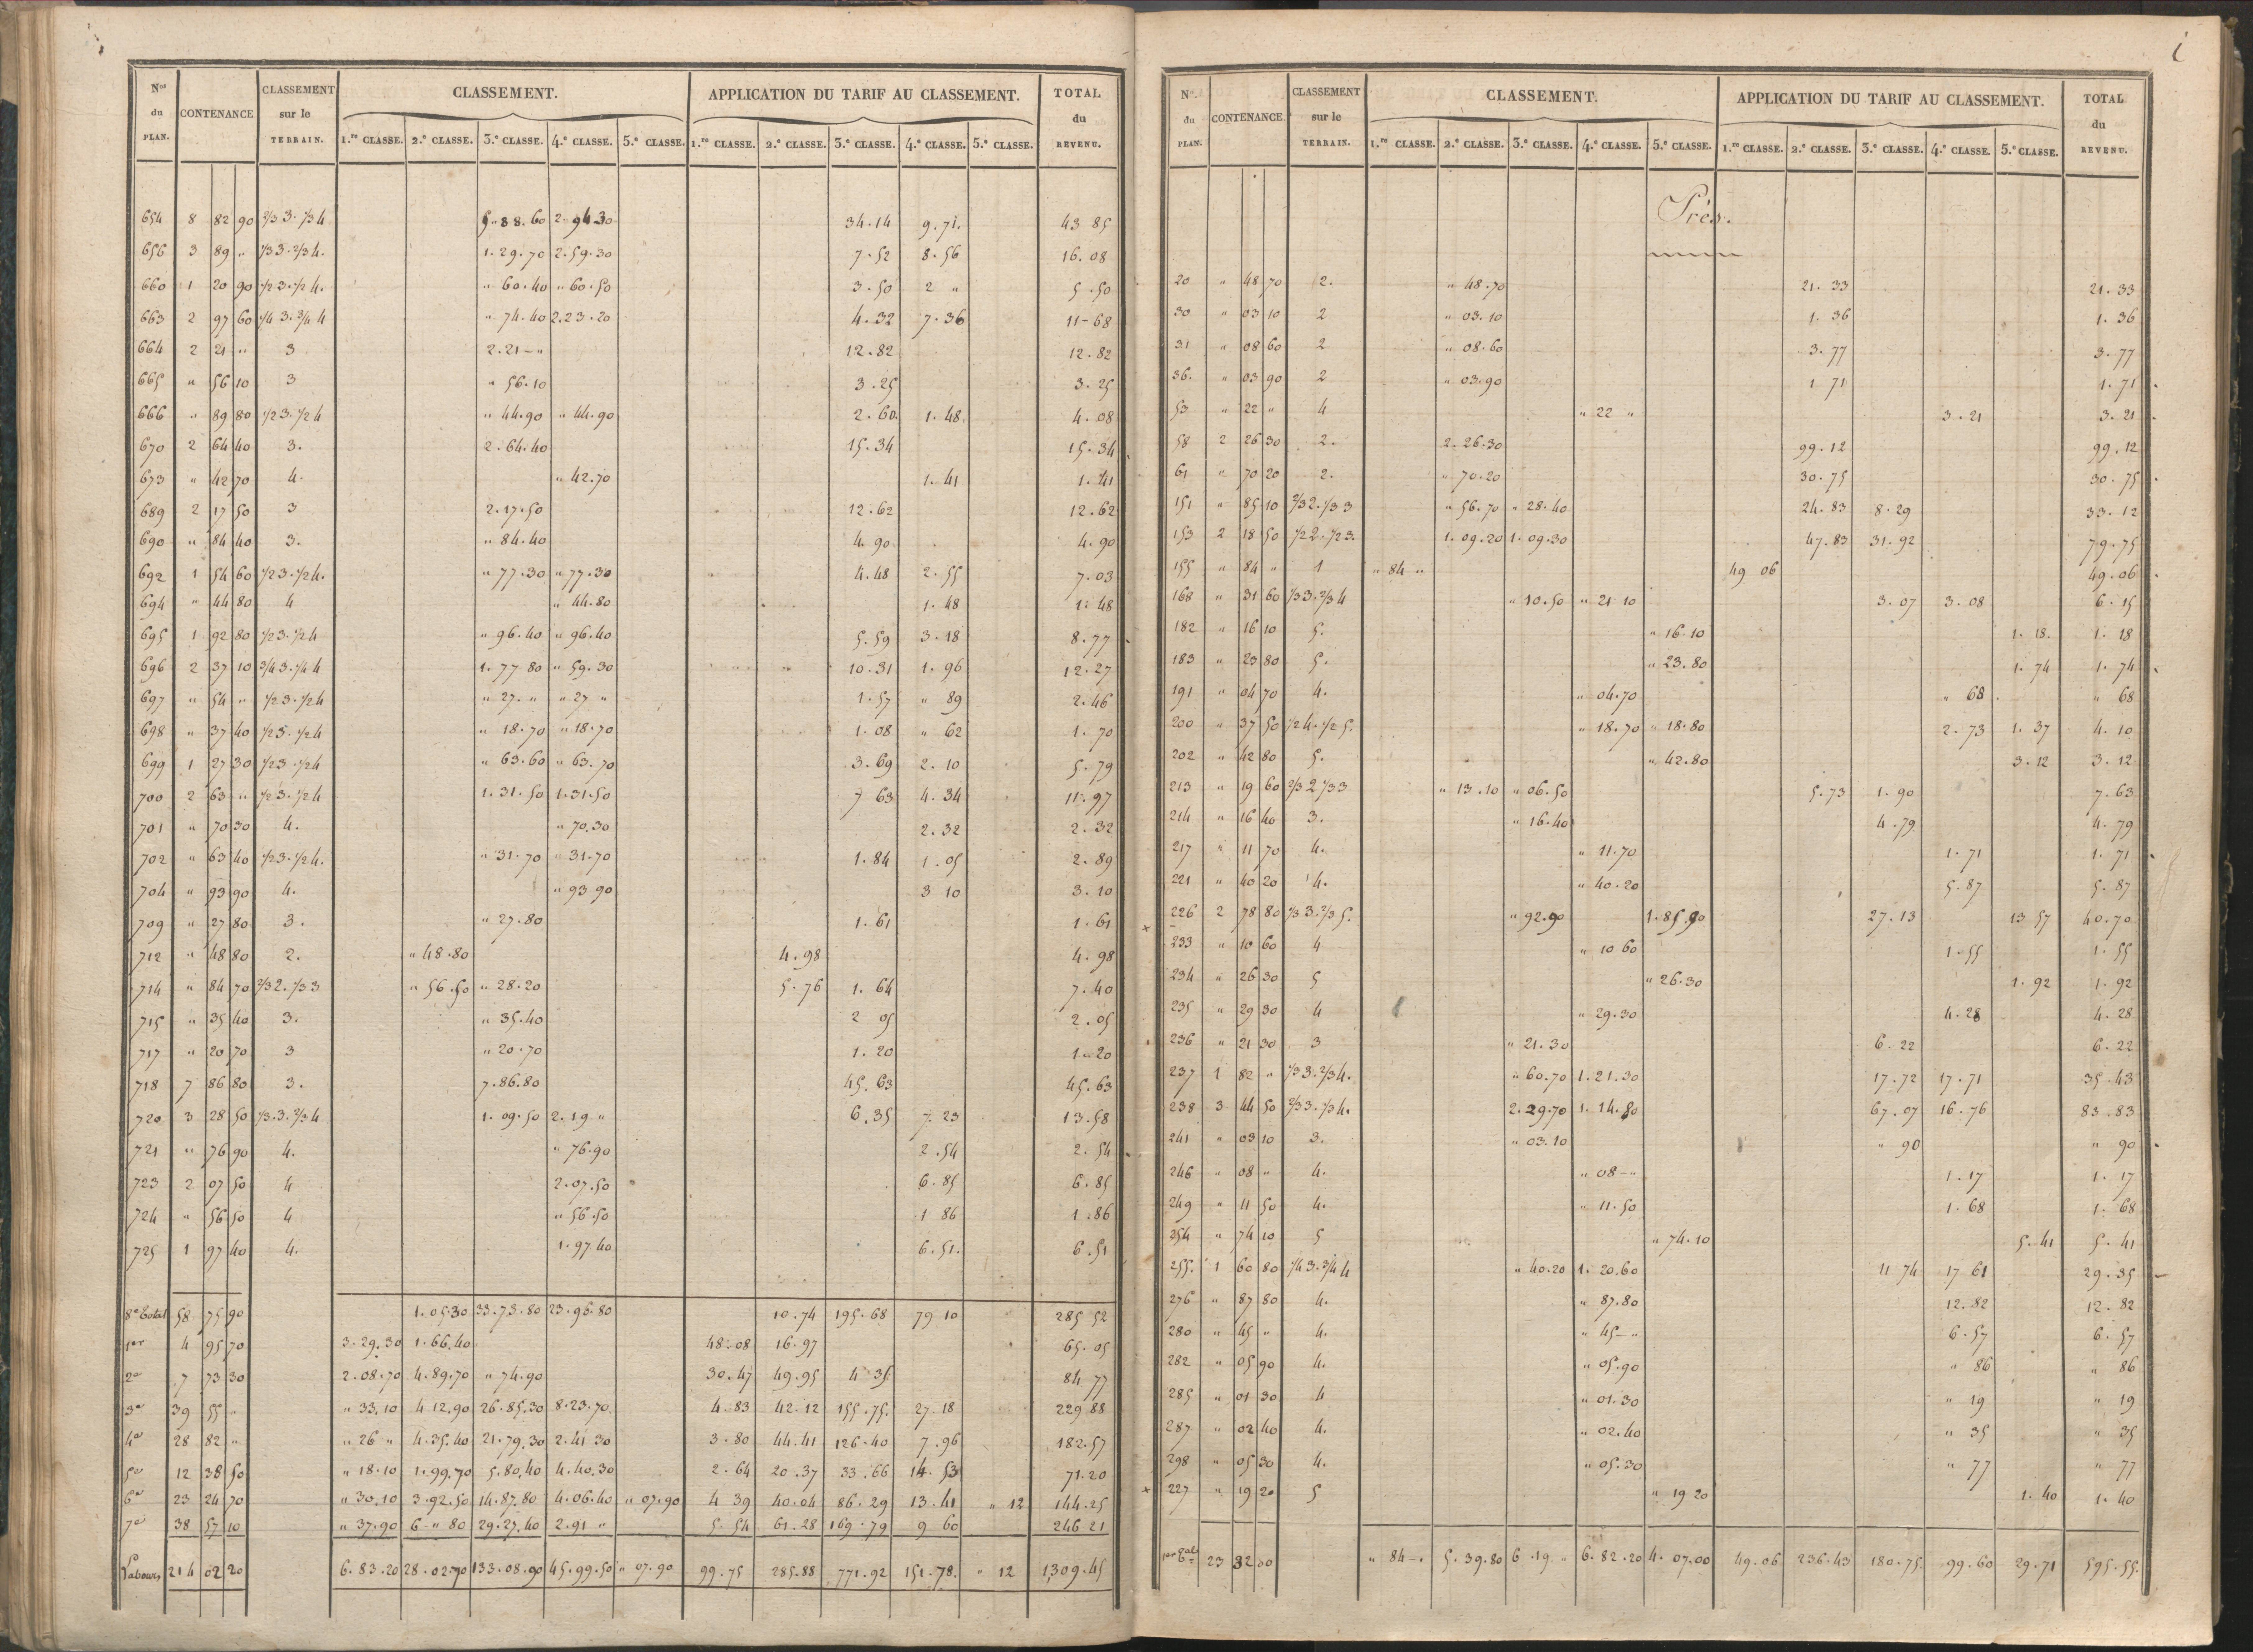 Nos du PLAN. CONTENANCE CLASSEMENT sur le TERRAIN. CLASSEMENT. APPLICATION DU TARIF AU CLASSEMENT. TOTAL du REVENU.
1.re CLASSE. 2.e CLASSE. 3.e CLASSE. 4.e CLASSE. 5.e CLASSE. 1.re CLASSE. 2.e CLASSE. 3.e CLASSE. 4.e CLASSE. 5.e CLASSE.
654 8 82 90 2/3 3. 1/3 4 5.88.60 2.94.30 34.14 9.71. 43 85
656 3 89 " 1/3 3. 2/3 4. 1.29.70 2.59.30 7.52 8.56 16.08
660 1 20 90 1/2 3. 1/2 4. " 60.40 " 60.50 3.50 2 " 5.50
663 2 97 60 1/4 3. 3/4 4 " 74.40 2.23.20 4.32 7.36 11-68
664 2 21 " 3 2.21-" 12.82 12.82
665 " 56 10 3 " 56.10 3.25 3.25
666 " 89 80 1/2 3. 1/2 4 " 44.90 " 44.90 2.60. 1.48 4.08
670 2 64 40 3. 2.64.40 15.34 15.34
673 " 42 70 4. " 42.70 1.41 1.41
689 2 17 50 3 2.17.50 12.62 12.62
690 " 84 40 3. " 84.40 4.90 4.90
692 1 54 60 1/2 3. 1/2 4. " 77.30 " 77.30 4.48 2.55 7.03
694 " 44 80 4 " 44.80 1.48 1.48
695 1 92 80 1/2 3. 1/2 4 " 96.40 " 96.40 5.59 3.18 8.77
696 2 37 10 3/4 3. 1/4 4 1.77 80 " 59.30 10.31 1.96 12.27
697 " 54 " 1/2 3. 1/2 4 " 27. " " 27 " 1.57 " 89 2.46
698 " 37 40 1/2 3. 1/2 4 " 18.70 " 18.70 1.08 " 62 1.70
699 1 27 30 1/2 3. 1/2 4 " 63.60 " 63.70 3.69 2.10 5.79
700 2 63 " 1/2 3. 1/2 4 1.31.50 1.31.50 7 63 4.34 11.97
701 " 70 30 4. " 70.30 2.32 2.32
702 " 63 40 1/2 3. 1/2 4. " 31.70 " 31.70 1.84 1.05 2.89
704 " 93 90 4. " 93 90 3 10 3.10
709 " 27 80 3. " 27.80 1.61 1.61
712 " 48 80 2. " 48.80 4.98 4.98
714 " 84 70 2/3 2. 1/3 3 " 56.50 " 28.20 5.76 1.64 7.40
715 " 35 40 3. " 35.40 2 05 2.05
717 " 20 70 3 " 20.70 1.20 1.20
718 7 86 80 3. 7.86.80 45.63 45.63
720 3 28 50 1/3. 3. 2/3 4 1.09.50 2.19 " 6.35 7.23 13.58
721 " 76 90 4. " 76.90 2.54 2.54
723 2 07 50 4 2.07.50 6.85 6.85
724 " 56 50 4 " 56.50 1 86 1.86
725 1 97 40 4. 1.97 40 6.51. 6.51
8e Total 58 75 90 1.05.30 33.73.80 23.96.80 10.74 195.68 79 10 285 52
1er 4 95 70 3.29.30 1.66.40 48.08 16.97 65.05
2e 7 73 30 2.08.70 4.89.70 " 74.90 30.47 49.95 4 35 84 77
3e 39 55 " " 33.10 4 12.90 26.85.30 8.23.70 4.83 42.12 155.75. 27.18 229 88
4e 28 82 " " 26 " 4.35.40 21.79.30 2.41 30 3.80 44.41 126.40 7.96 182.57
5e 12 38 50 " 18.10 1.99.70 5.80.40 4.40.30 2.64 20.37 33.66 14.53 71.20
6e 23 24 70 " 30.10 3.92.50 14.87.80 4.06.40 " 07.90 4 39 40.04 86.29 13.41 " 12 144.25
7e 38 57 10 " 37.90 6 " 80 29.27.40 2.91 " 5.54 61.28 169.79 9 60 246 21
Labours 214 02 20 6.83.20 28.02.70 133.08.90 45.99.50 " 07.90 99.75 285.88 771.92 151.78. " 12 1309.45
i
No. du PLAN. CONTENANCE. CLASSEMENT sur le TERRAIN. CLASSEMENT. APPLICATION DU TARIF AU CLASSEMENT. TOTAL du REVENU.
1.re CLASSE. 2.e CLASSE. 3.e CLASSE. 4.e CLASSE. 5.e CLASSE. 1.re CLASSE. 2.e CLASSE. 3.e CLASSE. 4.e CLASSE. 5.e CLASSE.
Prés.
20 " 48 70 2. " 48.70 21.33 21.33
30 " 03 10 2 " 03.10 1.36 1.36
31 " 08 60 2 " 08.60 3.77 3.77
36. " 03 90 2 " 03.90 1 71 1.71
53 " 22 " 4 " 22 " 3.21 3.21
58 2 26 30 2. 2.26.30 99.12 99.12
61 " 70 20 2. " 70.20 30.75 30.75
151 " 85 10 2/3 2. 1/3 3 " 56.70 " 28.40 24.83 8.29 33.12
153 2 18 50 1/2 2. 1/2 3. 1.09.20 1.09.30 47.83 31.92 79.75
155 " 84 " 1 " 84 " 49 06 49.06
168 " 31 60 1/3 3. 2/3 4 " 10.50 " 21 10 3.07 3.08 6.15
182 " 16 10 5. " 16.10 1.18. 1.18
183 " 23 80 5. " 23.80 1.74 1.74
191 " 04 70 4. " 04.70 " 68 " 68
200 " 37 50 1/2 4. 1/2 5. " 18.70 " 18.80 2.73 1.37 4.10
202 " 42 80 5. " 42.80 3.12 3.12
213 " 19 60 2/3 2 1/3 3 " 13.10 " 06.50 5.73 1.90 7.63
214 " 16 40 3. " 16.40 4.79 4.79
217 " 11 70 4. " 11.70 1.71 1.71
221 " 40 20 4. " 40.20 5.87 5.87
226 2 78 80 1/3 3. 2/3 5. " 92.90 1.85.90 27.13 13 57 40.70
233 " 10 60 4 " 10 60 1.55 1.55
234 " 26 30 5 " 26.30 1.92 1.92
235 " 29 30 4 " 29.30 4.28 4.28
236 " 21 30 3 " 21.30 6.22 6.22
237 1 82 " 1/3 3. 2/3 4. " 60.70 1.21.30 17.72 17.71 35.43
238 3 44 50 2/3 3. 1/3 4. 2.29.70 1.14.80 67.07 16.76 83.83
241 " 03 10 3. " 03.10 " 90 " 90
246 " 08 " 4. " 08-" 1.17 1.17
249 " 11 50 4. " 11.50 1.68 1.68
254 " 74 10 5 " 74.10 5.41 5.41
255. 1 60 80 1/4 3. 3/4 4 " 40.20 1.20.60 11 74 17 61 29.35
276 " 87 80 4. " 87.80 12.82 12.82
280 " 45 " 4. " 45-" 6.57 6.57
282 " 05 90 4. " 05.90 " 86 " 86
285 " 01 30 4 " 01.30 " 19 " 19
287 " 02 40 4. " 02.40 " 35 " 35
298 " 05 30 4. " 05.30 " 77 " 77
227 " 19 20 5 " 19 20 1.40 1.40
23 32 00 " 84 -. 5.39.80 6.19. " 6.82.20 4.07.00 49.06 236.43 180.75. 99.60 29.71 595.55.